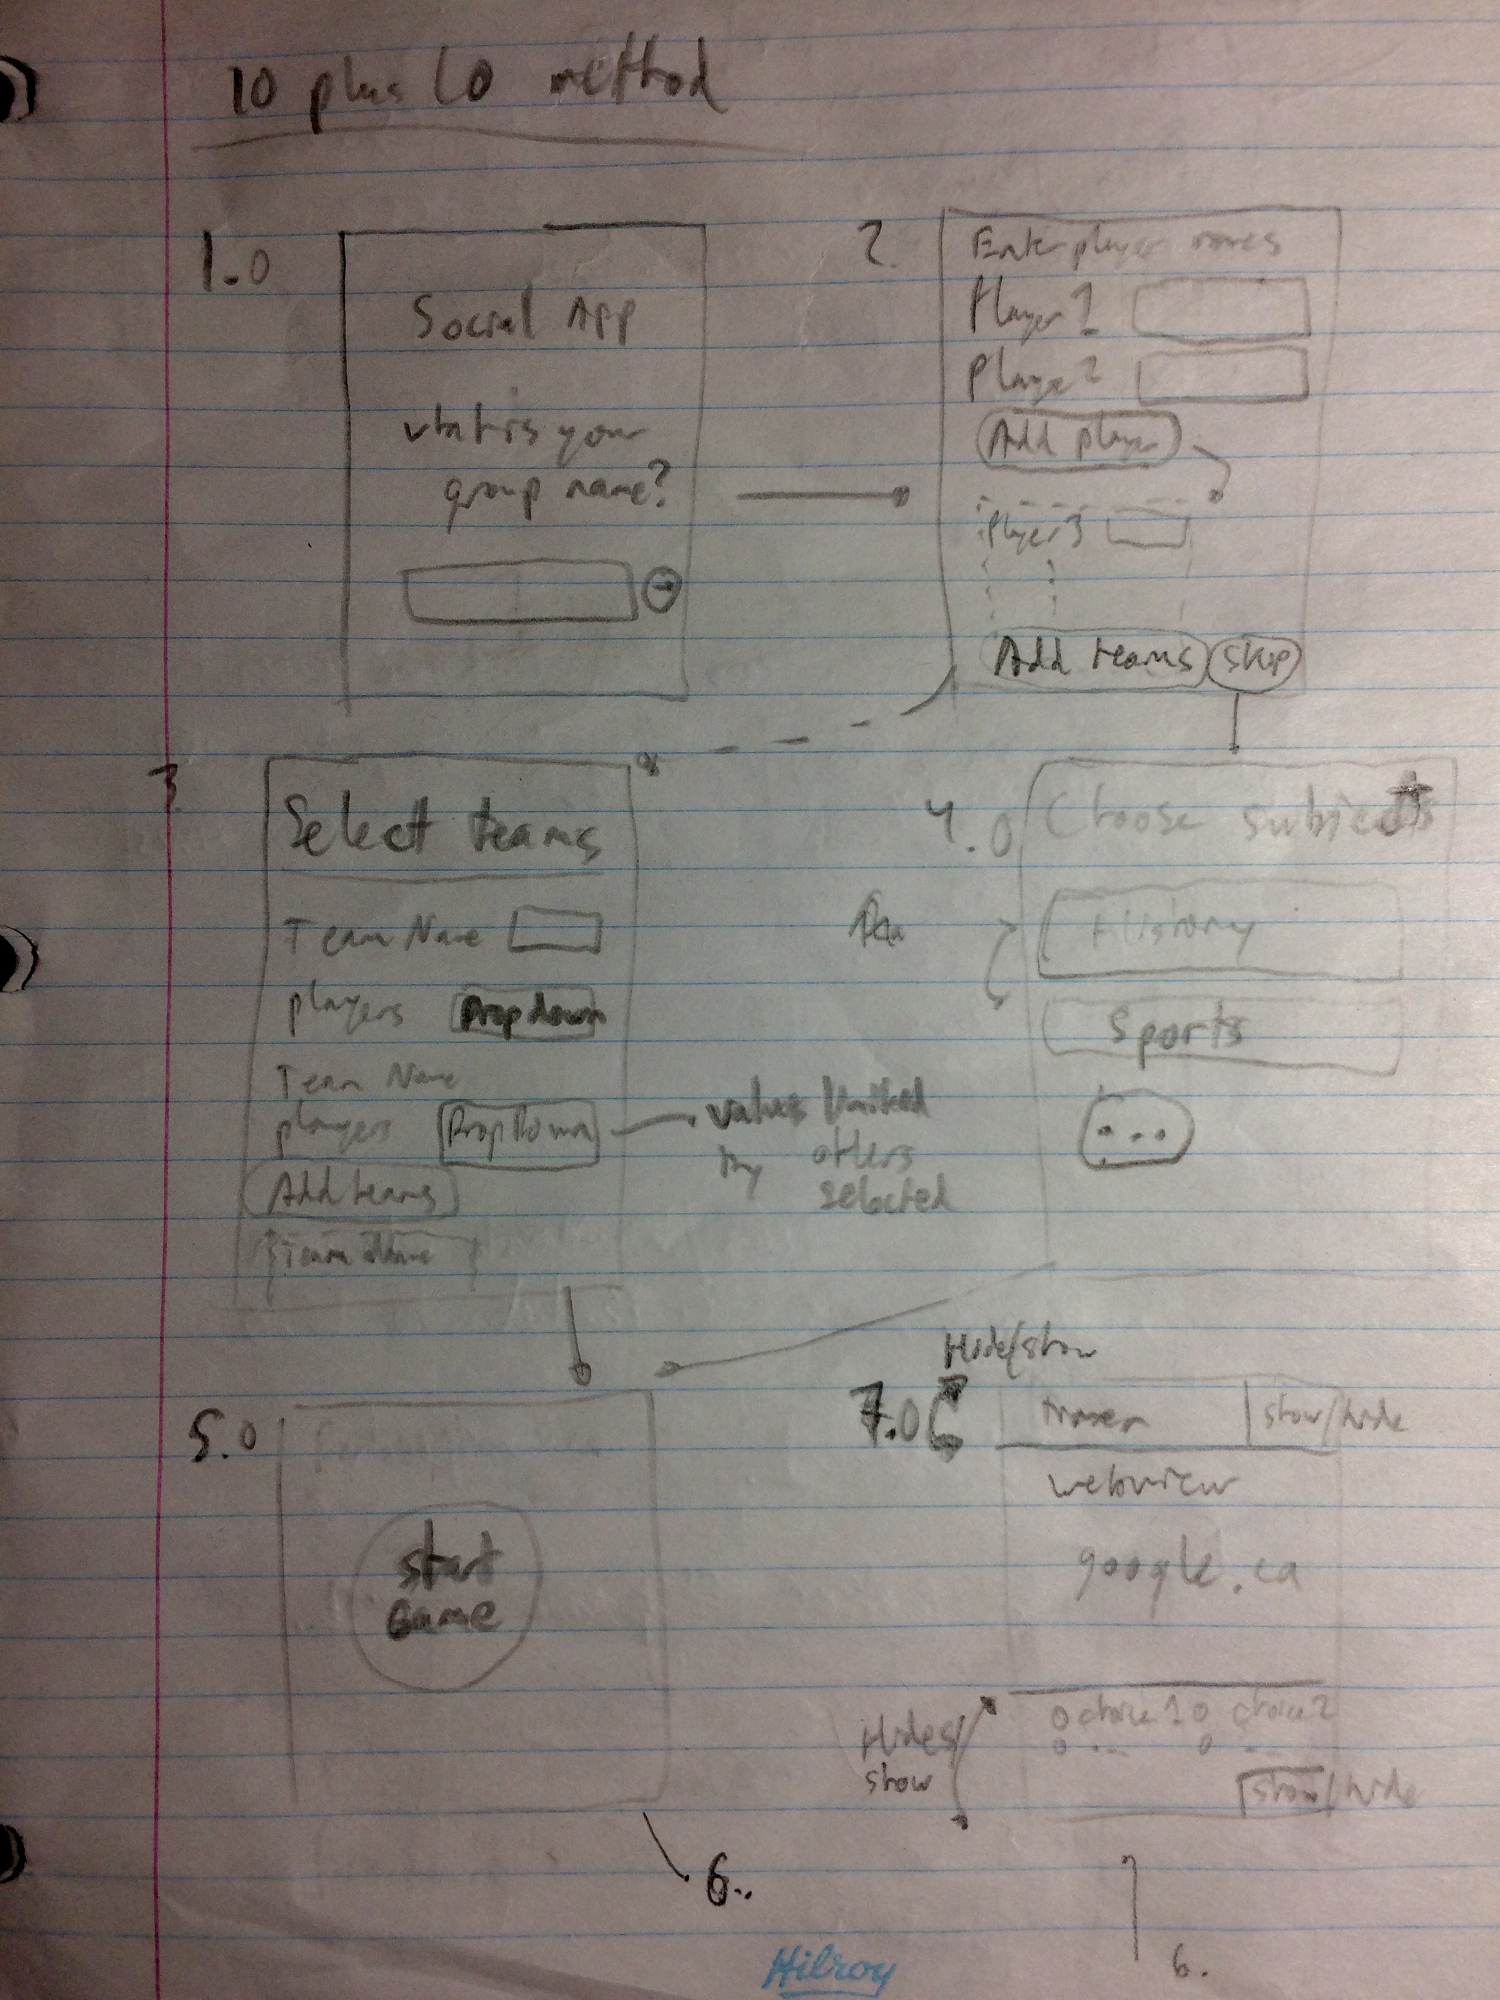 10 plus 10 method
1.0
Social App
what is your
group name?
2.
Enter player names
Player 1
Player 2
Add player
Player 3
Add teams
skip
3
Select teams
Team Name
players Dropdown
Team Name
players DropDown
values limited
by others
selected
Add teams
Team Name
4.0
Choose subjects
History
Sports
...
5.0
start
Game
6..
Hide/show
7.0
show/hide
webview
google.ca
Hides/
show
choice 1 choice 2
...
show/hide
6.
Hilroy